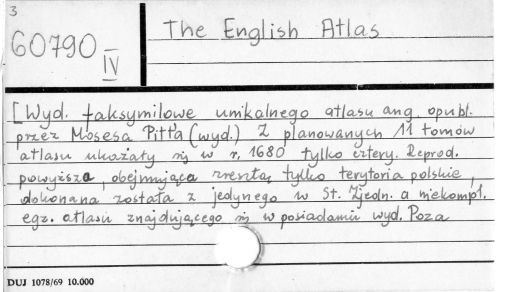 3
60790
IV
The English Atlas
[Wyd. faksymilowe unikalnego atlasu ang. opubl.
przez Mosesa Pitt'a (wyd.) Z planowanych 11 tomów
atlasu ukazały się w r. 1680 tylko cztery. Reprod.
powyższa, obejmująca zresztą tylko terytoria polskie,
dokonana została z jedynego w St. Zjedn. a niekompl.
egz. atlasu znajdującego się w posiadaniu wyd. Poza
DUJ 1078/69 10.000